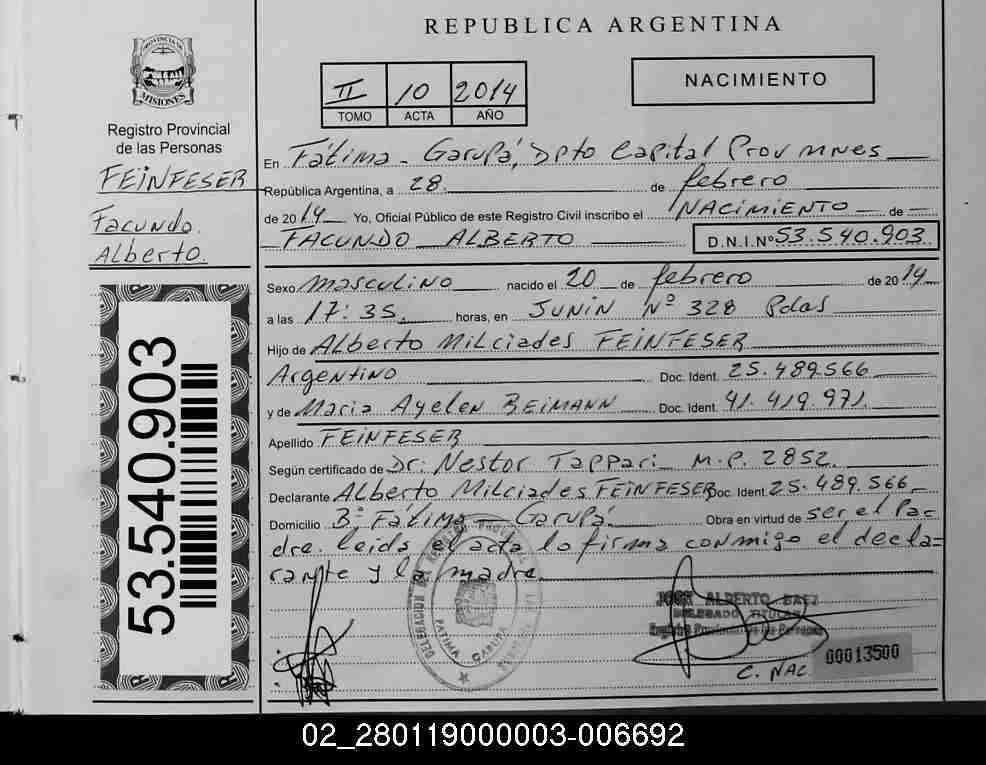 REPUBLICA ARGENTINA
PROVINCIA DE
MISIONES
Registro Provincial
de las Personas
FEINFESER
Facundo.
Alberto.
53.540.903
II 10 2014
TOMO ACTA AÑO
NACIMIENTO
En Fátima - Garupá, Dpto Capital Prov Mnes
República Argentina, a 28. de febrero
de 2014 Yo, Oficial Público de este Registro Civil inscribo el NACIMIENTO de
FACUNDO ALBERTO D.N.I.Nº 53.540.903
Sexo masculino nacido el 20 de febrero de 2014
a las 17:35. horas, en JUNIN Nº 328 Pdas
Hijo de Alberto Milciades FEINFESER
Argentino Doc. Ident. 25.489.566
y de Maria Ayelen BEIMANN Doc. Ident. 41.419.971.
Apellido FEINFESER
Según certificado de Dr. Nestor Tappari M.P. 2852.
Declarante Alberto Milciades FEINFESER Doc. Ident. 25.489.566
Domicilio Bº Fátima - Garupá. Obra en virtud de ser el Pa-
dre. leida el acta lo firma conmigo el decla-
rante y la madre.
FATIMA GARUPA
JOSE ALBERTO BAEZ
DELEGADO TITULAR
Registro Provincial de las Personas
C. NAC 00013500
02_280119000003-006692